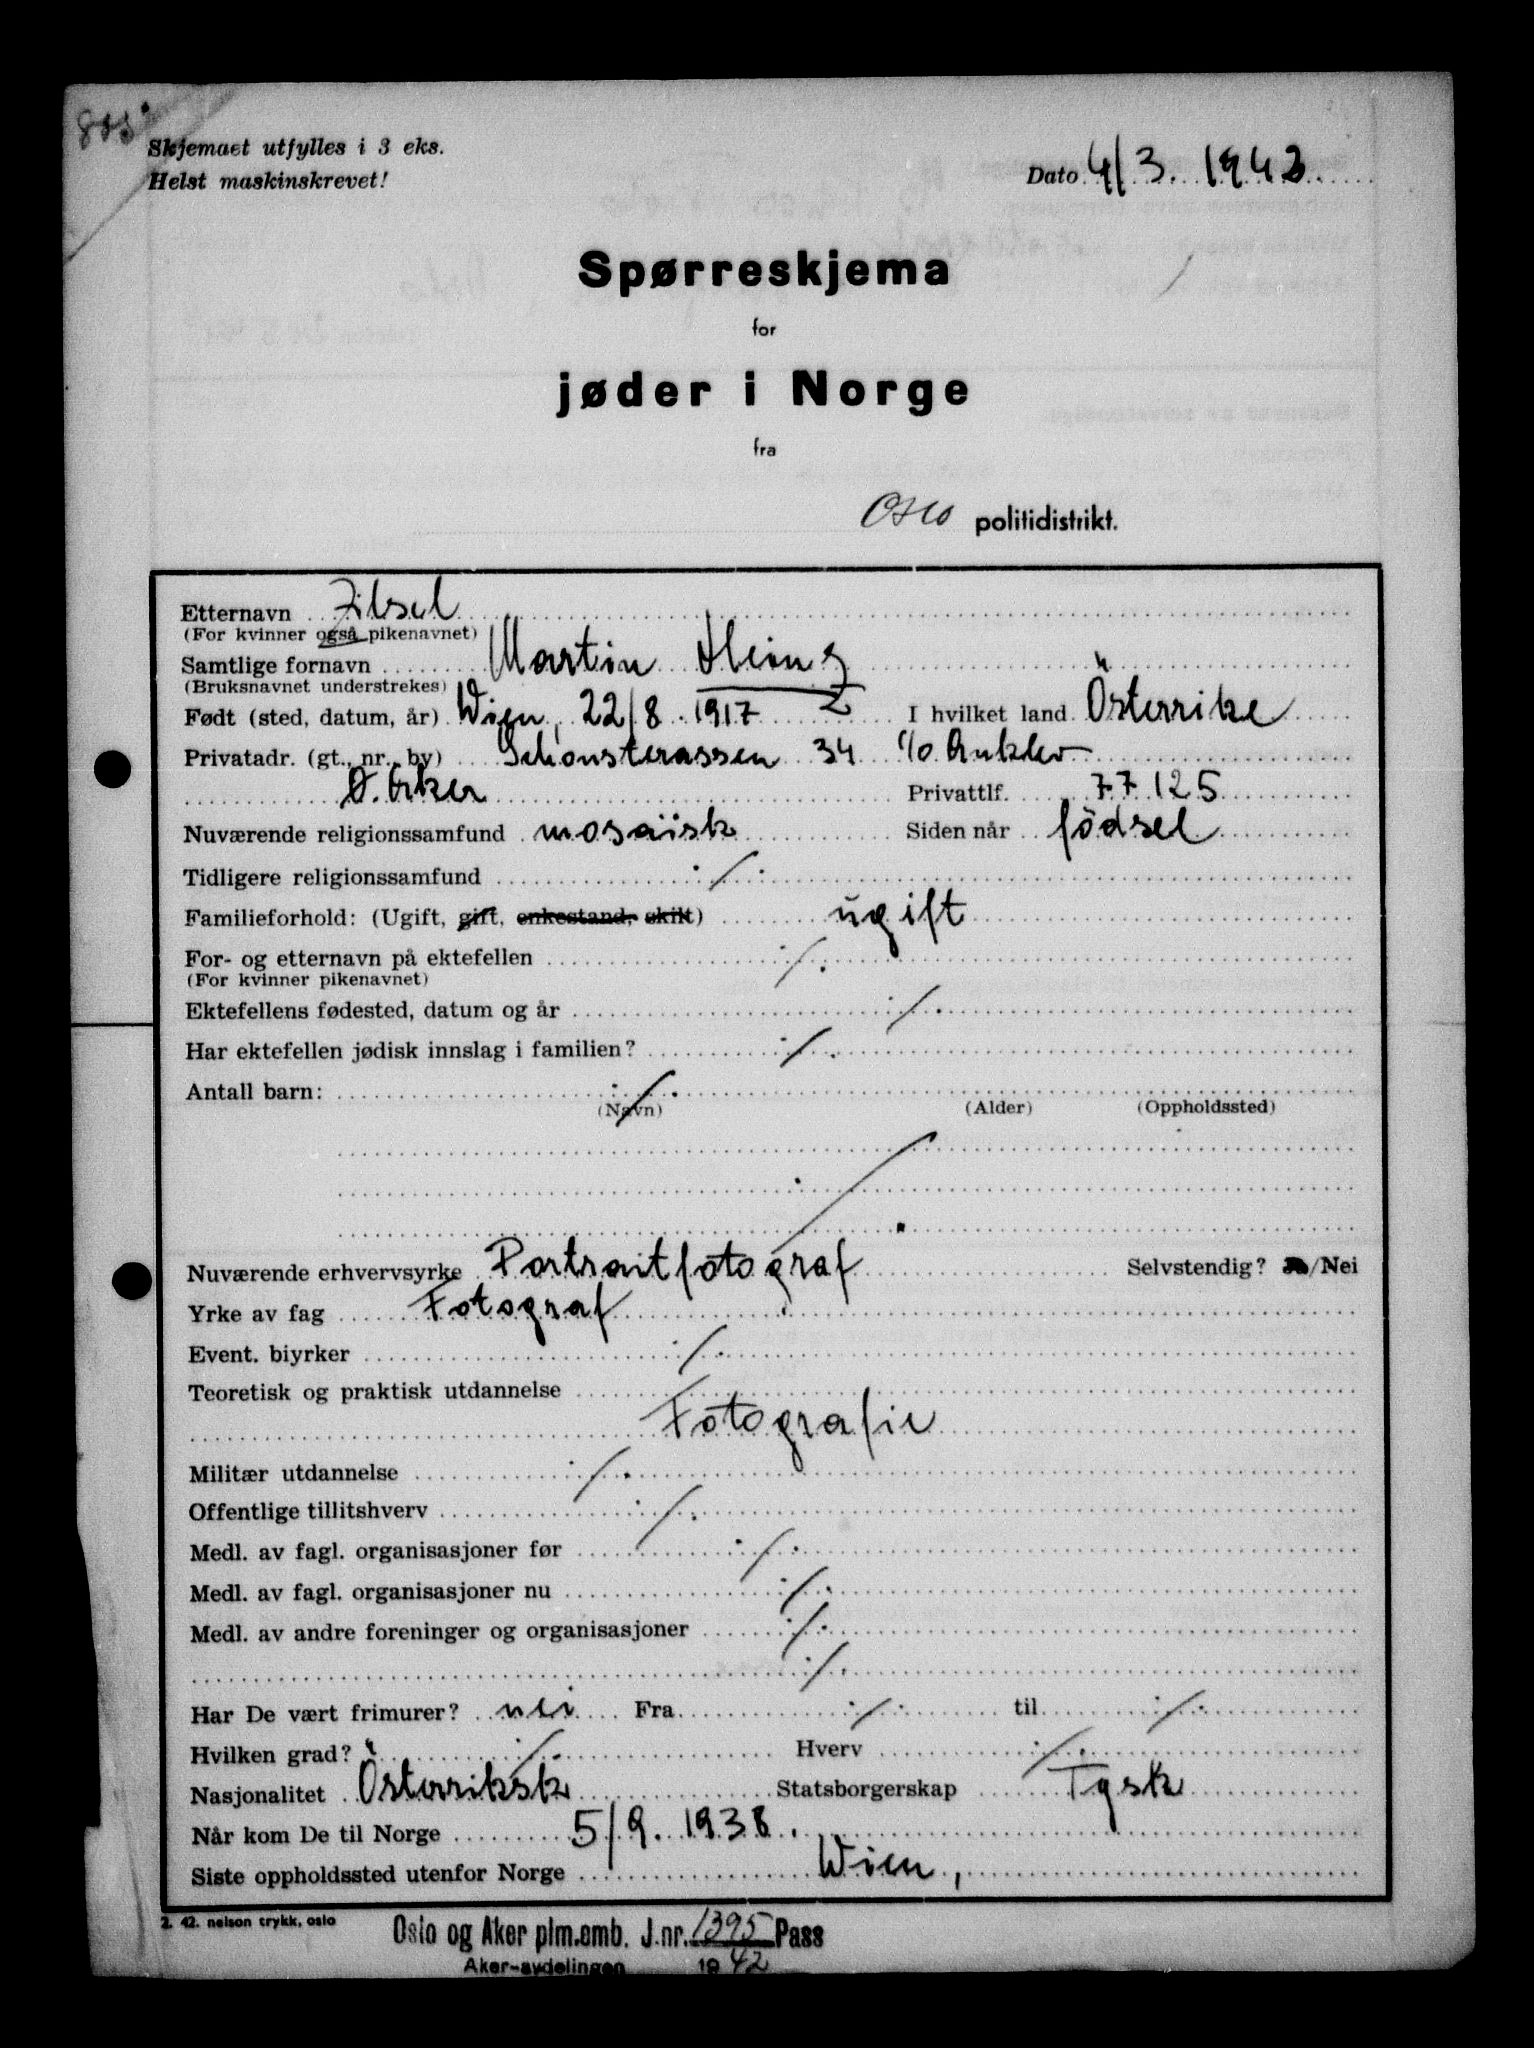 Skjemaet utfylles i 3 eks.
Helst maskinskrevet!
Dato 4/3. 1942.
Spørreskjema
for
jøder i Norge
fra
Oslo politidistrikt.
Etternavn Zilsel
(For kvinner også pikenavnet)
Samtlige fornavn Martin Heinz
(Bruksnavnet understrekes)
Født (sted, datum, år) Wien, 22/8. 1917 I hvilket land Österrike
Privatadr. (gt., nr., by) 34 c/o
Ø. Aker Privattlf. 77125
Nuværende religionssamfund mosaiisk Siden når födsel
Tidligere religionssamfund ./.
Familieforhold: (Ugift, gift, enkestand, skilt) ugift
For- og etternavn på ektefellen ./.
(For kvinner pikenavnet)
Ektefellens fødested, datum og år ./.
Har ektefellen jødisk innslag i familien? ./.
Antall barn: ./.
(Navn) (Alder) (Oppholdssted)
./.
Nuværende erhvervsyrke Portraitfotograf Selvstendig? Ja/Nei
Yrke av fag Fotograf
Event. biyrker ./.
Teoretisk og praktisk utdannelse
Fotografie
Militær utdannelse ./.
Offentlige tillitshverv ./.
Medl. av fagl. organisasjoner før ./.
Medl. av fagl. organisasjoner nu ./.
Medl. av andre foreninger og organisasjoner ./.
./.
Har De vært frimurer? nei Fra ./. til ./.
Hvilken grad? ./. Hverv ./.
Nasjonalitet Österriksk Statsborgerskap Tysk
Når kom De til Norge 5/9. 1938.
Siste oppholdssted utenfor Norge Wien,
2. 42. nelson trykk, oslo
Oslo og Aker plm.emb. J.nr. 1395 Pass
Aker-avdelingen 1942